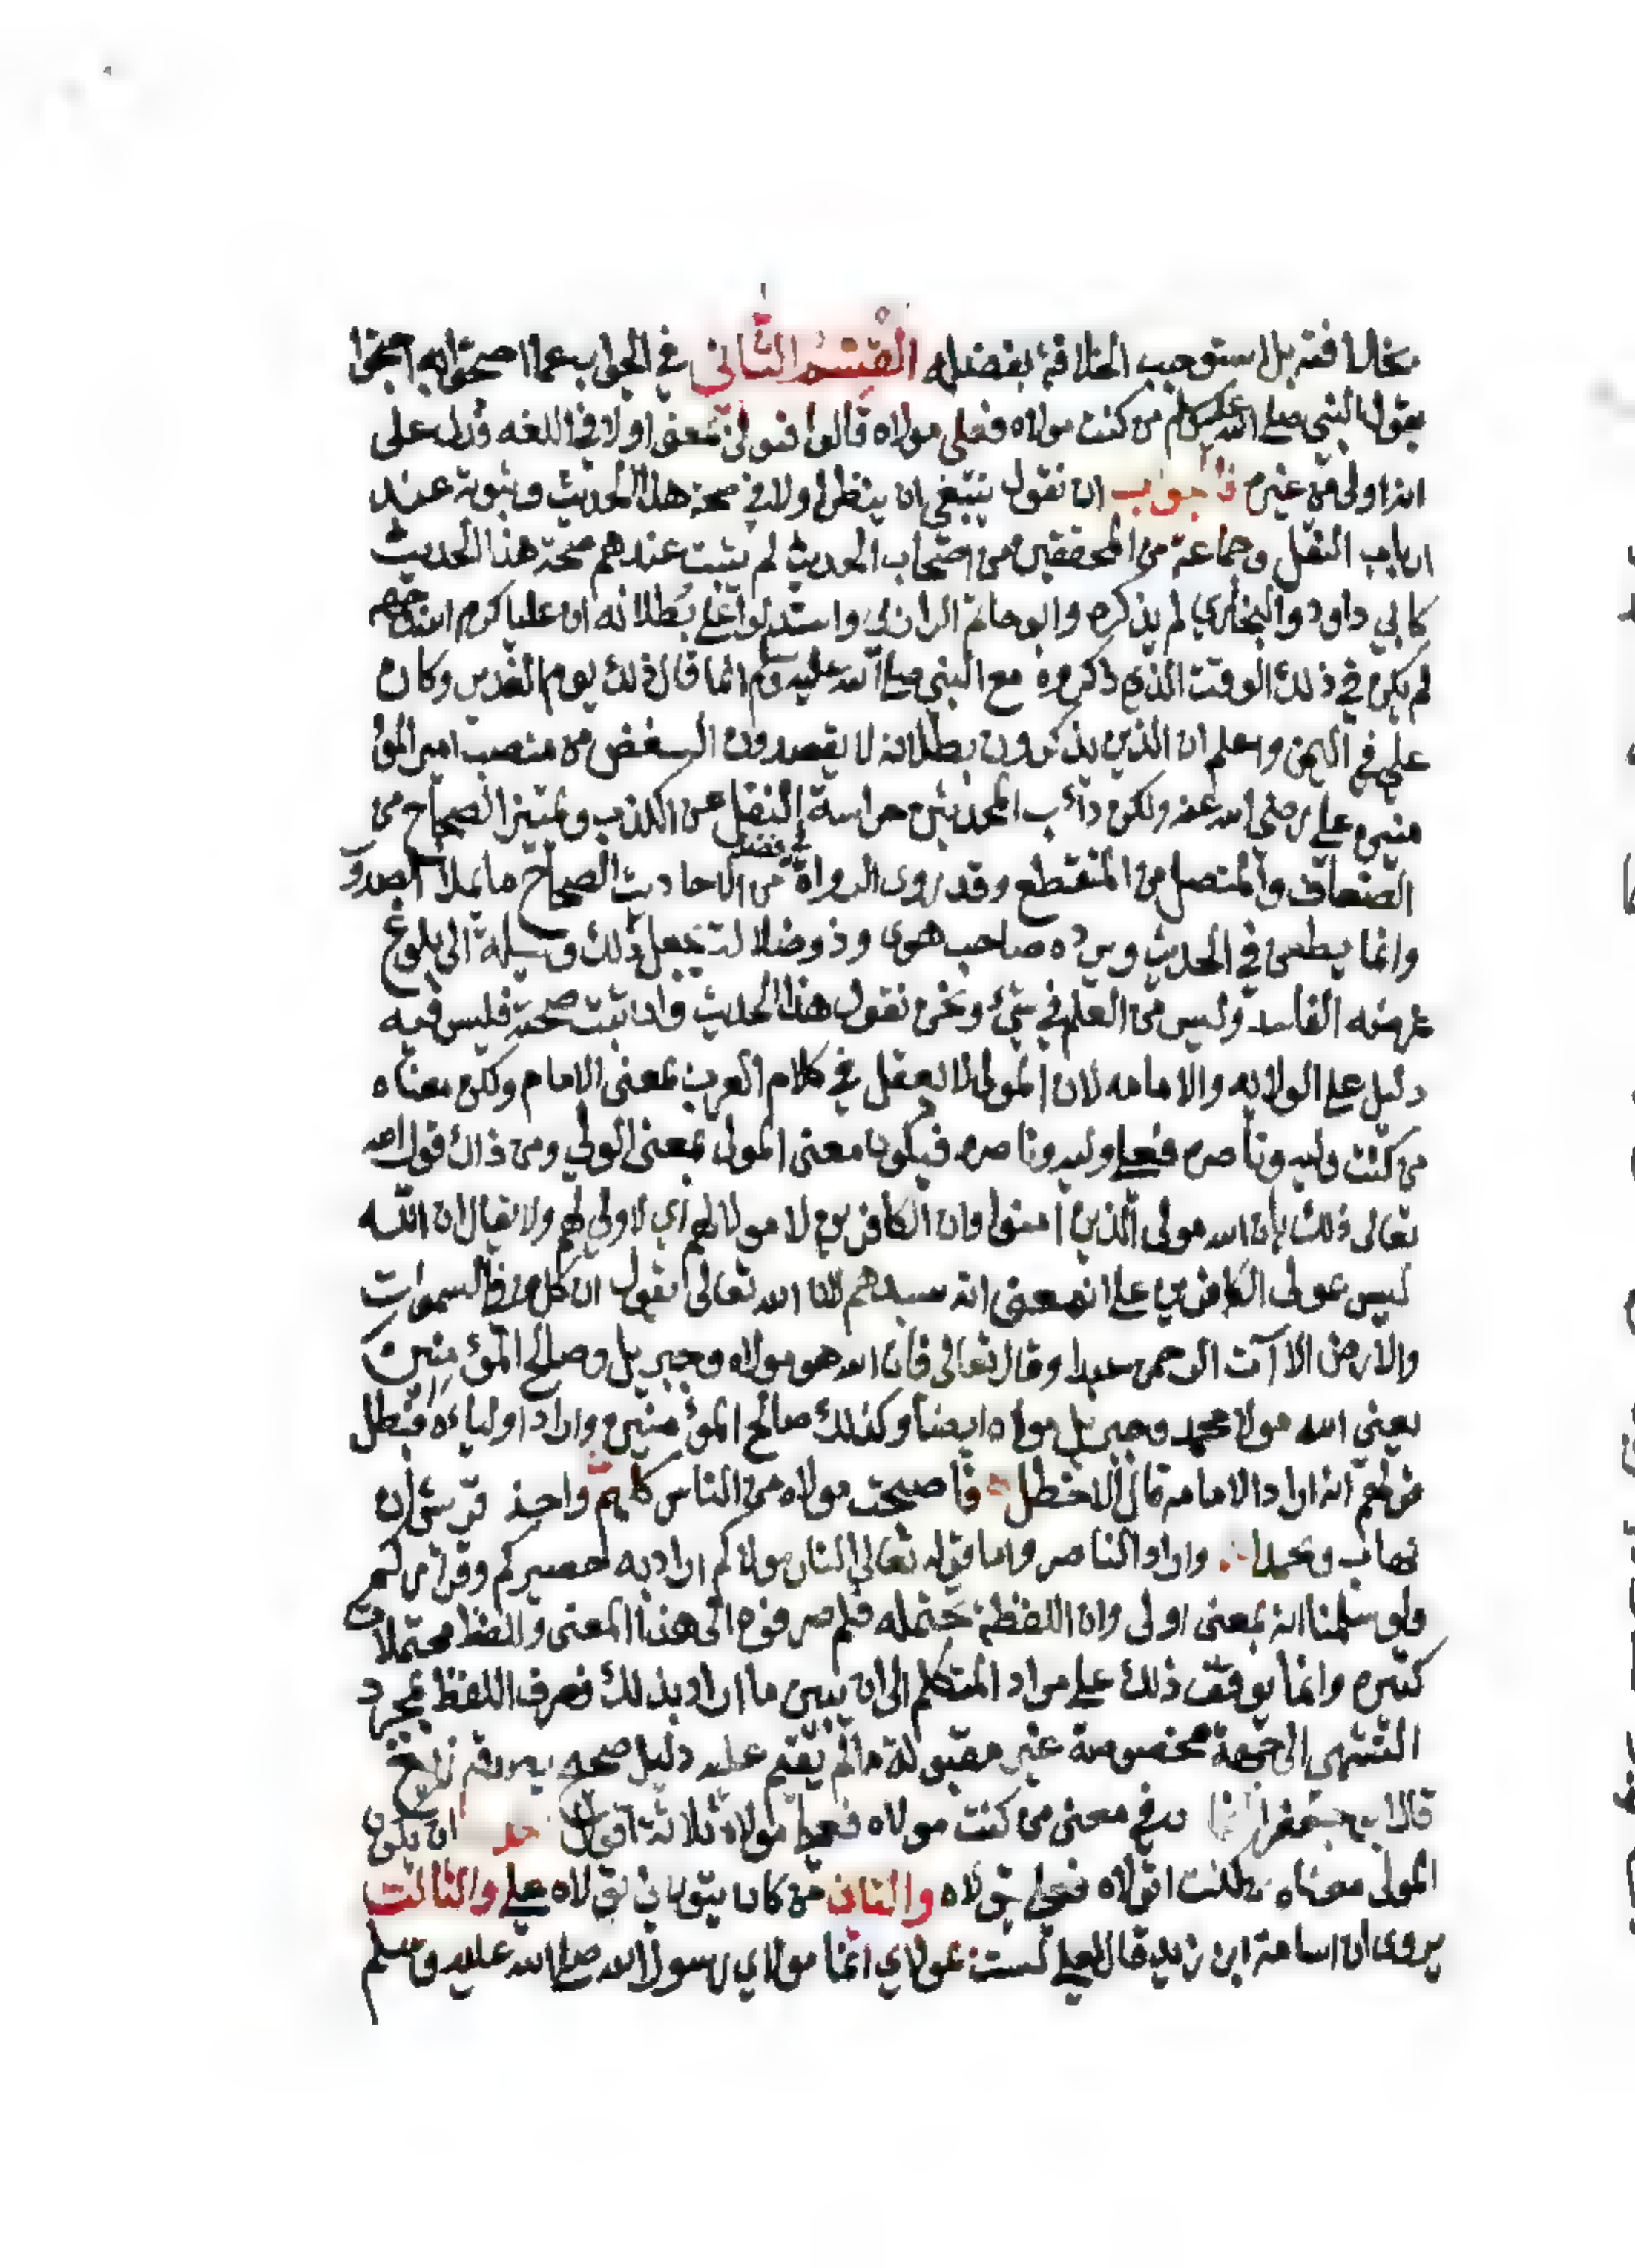 بخالافته بل استوجب الخلافة بفضله القسم الثاني في الجواب عما احتجوا به احتجوا
بقول النبي صلى الله عليه وسلم من كنت مولاه فعلي مولاه قالوا فمولى بمعنى اولى في اللغه فدل على
انه اولى من غيره فالجواب ان نقول ينبغي ان ينظر اولا في صحة هذا الحديث وثبوته عند
ارباب النقل وجماعة من المحققين من اصحاب الحديث لم يثبت عندهم صحة هذا الحديث
كابي داود والبخاري لم يذكره وابو حاتم الرازي واستدلوا على بطلانه ان عليا كرم الله وجهه
لم يكن في ذلك الوقت الذي ذكروه مع النبي صلى الله عليه وسلم انما قال ذلك يوم الغدير وكان
علي في اليمن واعلم ان الذين يذكرون بطلانه لا يقصدون البغض من منصب امير المؤ
منين علي رضي الله عنه ولكن دأب المحدثين حراسة النقل عن الكذب وتمييز الصحاح من
الضعاف والمتصل من المنقطع وقد روى الرواة في فضله من الاحاديث الصحاح ما يملأ الصدو
وانما يطعن في الحديث ويرده صاحب هوى وذو ضلالة يجعل ذلك وسيلة الى بلوغ
غرضه الفاسد وليس من العلم في شئ ونحن نقول هذا الحديث وان ثبت صحته فليس فيه
دليل على الولايه والامامه لان المولى لا يعقل في كلام العرب بمعنى الامام ولكن معناه
من كنت وليه وناصره فعلي وليه وناصره فيكون معنى المولى بمعنى الولي ومن ذلك قول الله
تعالى ذلك بان الله مولى الذين امنوا وان الكافرين لا مولا لهم اي لا ولي لهم ولا يقال ان الله
ليس بمولى الكافرين على انه بمعنى انه سيدهم لان الله تعالى يقول ان كل من في السموات
والارض الا آت الرحمن عبدا وقال تعالى فان الله هو مولاه وجبريل وصالح المؤمنين
يعني الله مولا محمد وجبريل مولاه ايضا وكذلك صالح المؤمنين واراد اولياءه فبطل
قولهم انه اراد الامامه قال الاخطل فاصبحت مولاه من الناس كلهم واحد قريش ان
تهاب وتحمدا واراد الناصر واما قوله تعالى النار مولاكم اراد به مصيركم وقراركم
ولو سلمنا انه بمعنى اولى وان اللفظة تحتمله فلم صرفوه الى هذا المعنى وللفظ محتملات
كثيره وانما يوقف ذلك على مراد المتكلم الى ان يبين ما اراد بذلك فصرف اللفظ بمجرد
التشهي الى جهة مخصوصة غير مقبولة مالم يقم عليه دليل صحه
قال ابي جعفر في معنى من كنت مولاه فعلي مولاه ثلاثة اقوال احد ان يكون
المولى معناه من كنت اتولاه فعلي يتولاه والثاني من كان يتولاني تولاه علي والثالث
يروى ان اسامة ابن زيد قال لعلي لست بمولاي انما مولاي رسول الله صلى الله عليه وسلم